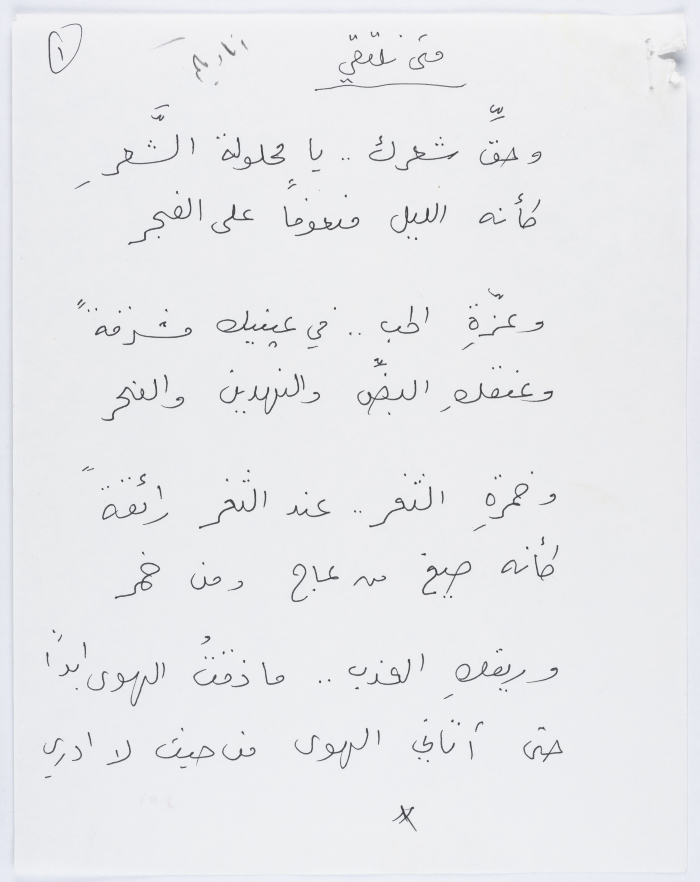 ١
متى نلتقي
وحقِّ شعرك .. يا محلولة الشَّعرِ
كأنه الليل منعوفاً على الفجر
وعزّةِ الحب .. في عينيك مشرقةً
وعنقكِ البضِّ والنهدين والنحر
وخمرةِ الثغر .. عند الثغر رائقةً
كأنه صيغ من عاج ومن خمر
وريقكِ العذب .. ما ذقتُ الهوى ابداً
حتى أتاني الهوى من حيث لا ادري